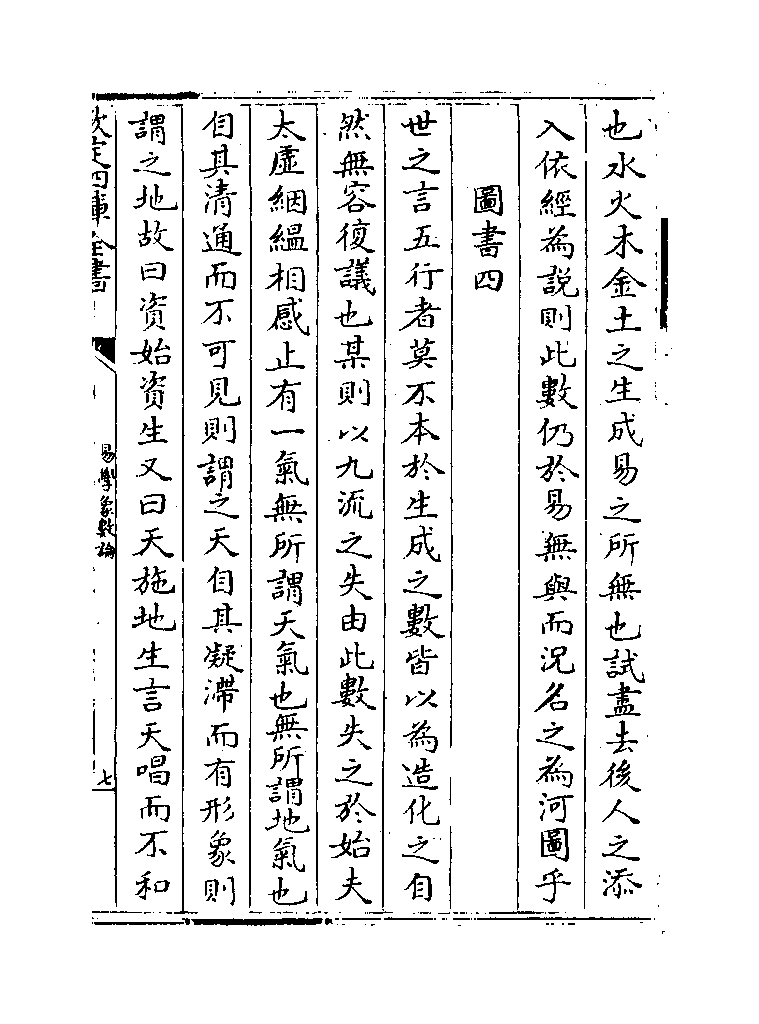 也水火木金土之生成易之所無也試盡去後人之添
入依經為說則此數仍於易無與而況名之為河圖乎
圖書四
世之言五行者莫不本於生成之數皆以為造化之自
然無容復議也某則以九流之失由此數失之於始夫
太虛絪緼相感止有一氣無所謂天氣也無所謂地氣也
自其清通而不可見則謂之天自其凝滯而有形象則
謂之地故曰資始資生又曰天施地生言天唱而不和
欽定四庫全書
易學象數論
七